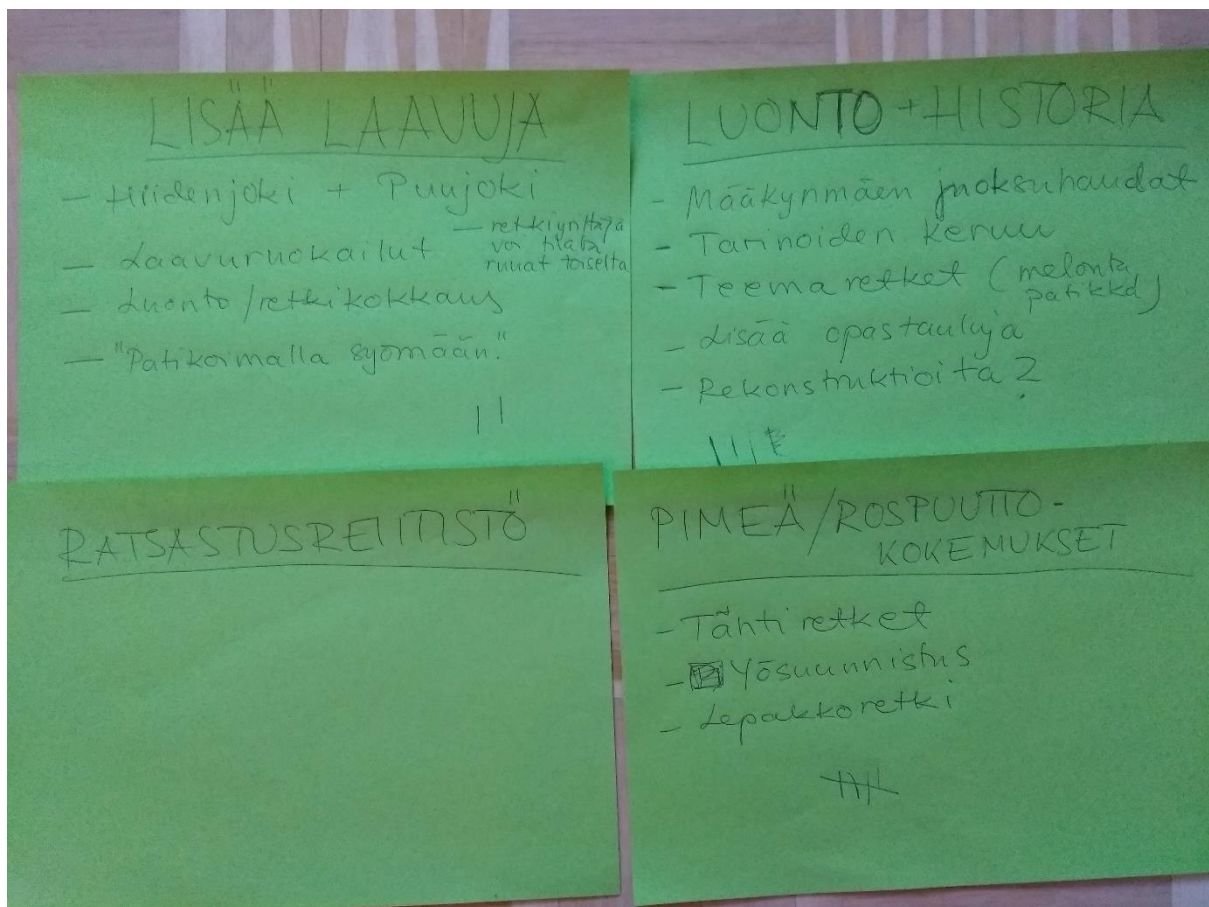 LISÄÄ LAAVUJA
- Hiidenjoki + Puujoki
- Laavuruokailut
- retkiynttäjä
voi tilata
ruuat toiselta
- Luonto/retkikokkaus
- "Patikoimalla syömään."
LUONTO + HISTORIA
- Määkynmäen juoksuhaudat
- Tarinoiden keruu
- Teema retket (melonta
patikka)
- Lisää opastauluja
- Rekonstruktioita?
RATSASTUSREITISTÖ
PIMEÄ/ROSPUUTTO-
KOKEMUKSET
- Tähtiretket
- Yösuunnistus
- Lepakkoretki